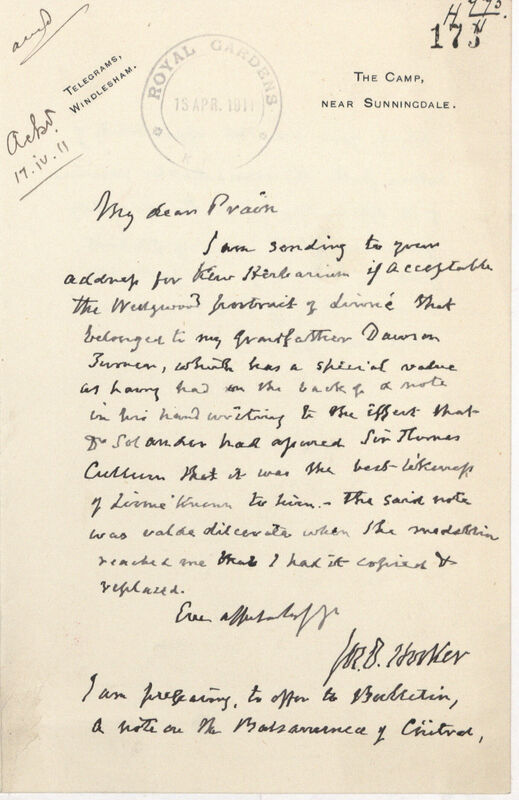 and
H 773.
H
173
TELEGRAMS,
WINDLESHAM.
THE CAMP,
NEAR SUNNINGDALE.
ROYAL GARDENS
15 APR. 1911
K
Ackd.
17.IV.11
My dear Prain
I am sending to your
address for Kew Herbarium if acceptable
the Wedgwood portrait of Linné that
belonged to my grandfather Dawson
Turner, which has a special value
as having had on the back of a note
in his hand writing to the effect that
Dr Solander had assured Sir Thomas
Cullum that it was the best likeness
of Linné known to him. - The said note
was valde dilcerata when the medallion
reached me that I had it copied &
replaced.
Ever affectately yr
Jos. D. Hooker
I am preparing, to offer to Bulletin,
a note on the Balsamineae of Chitral,